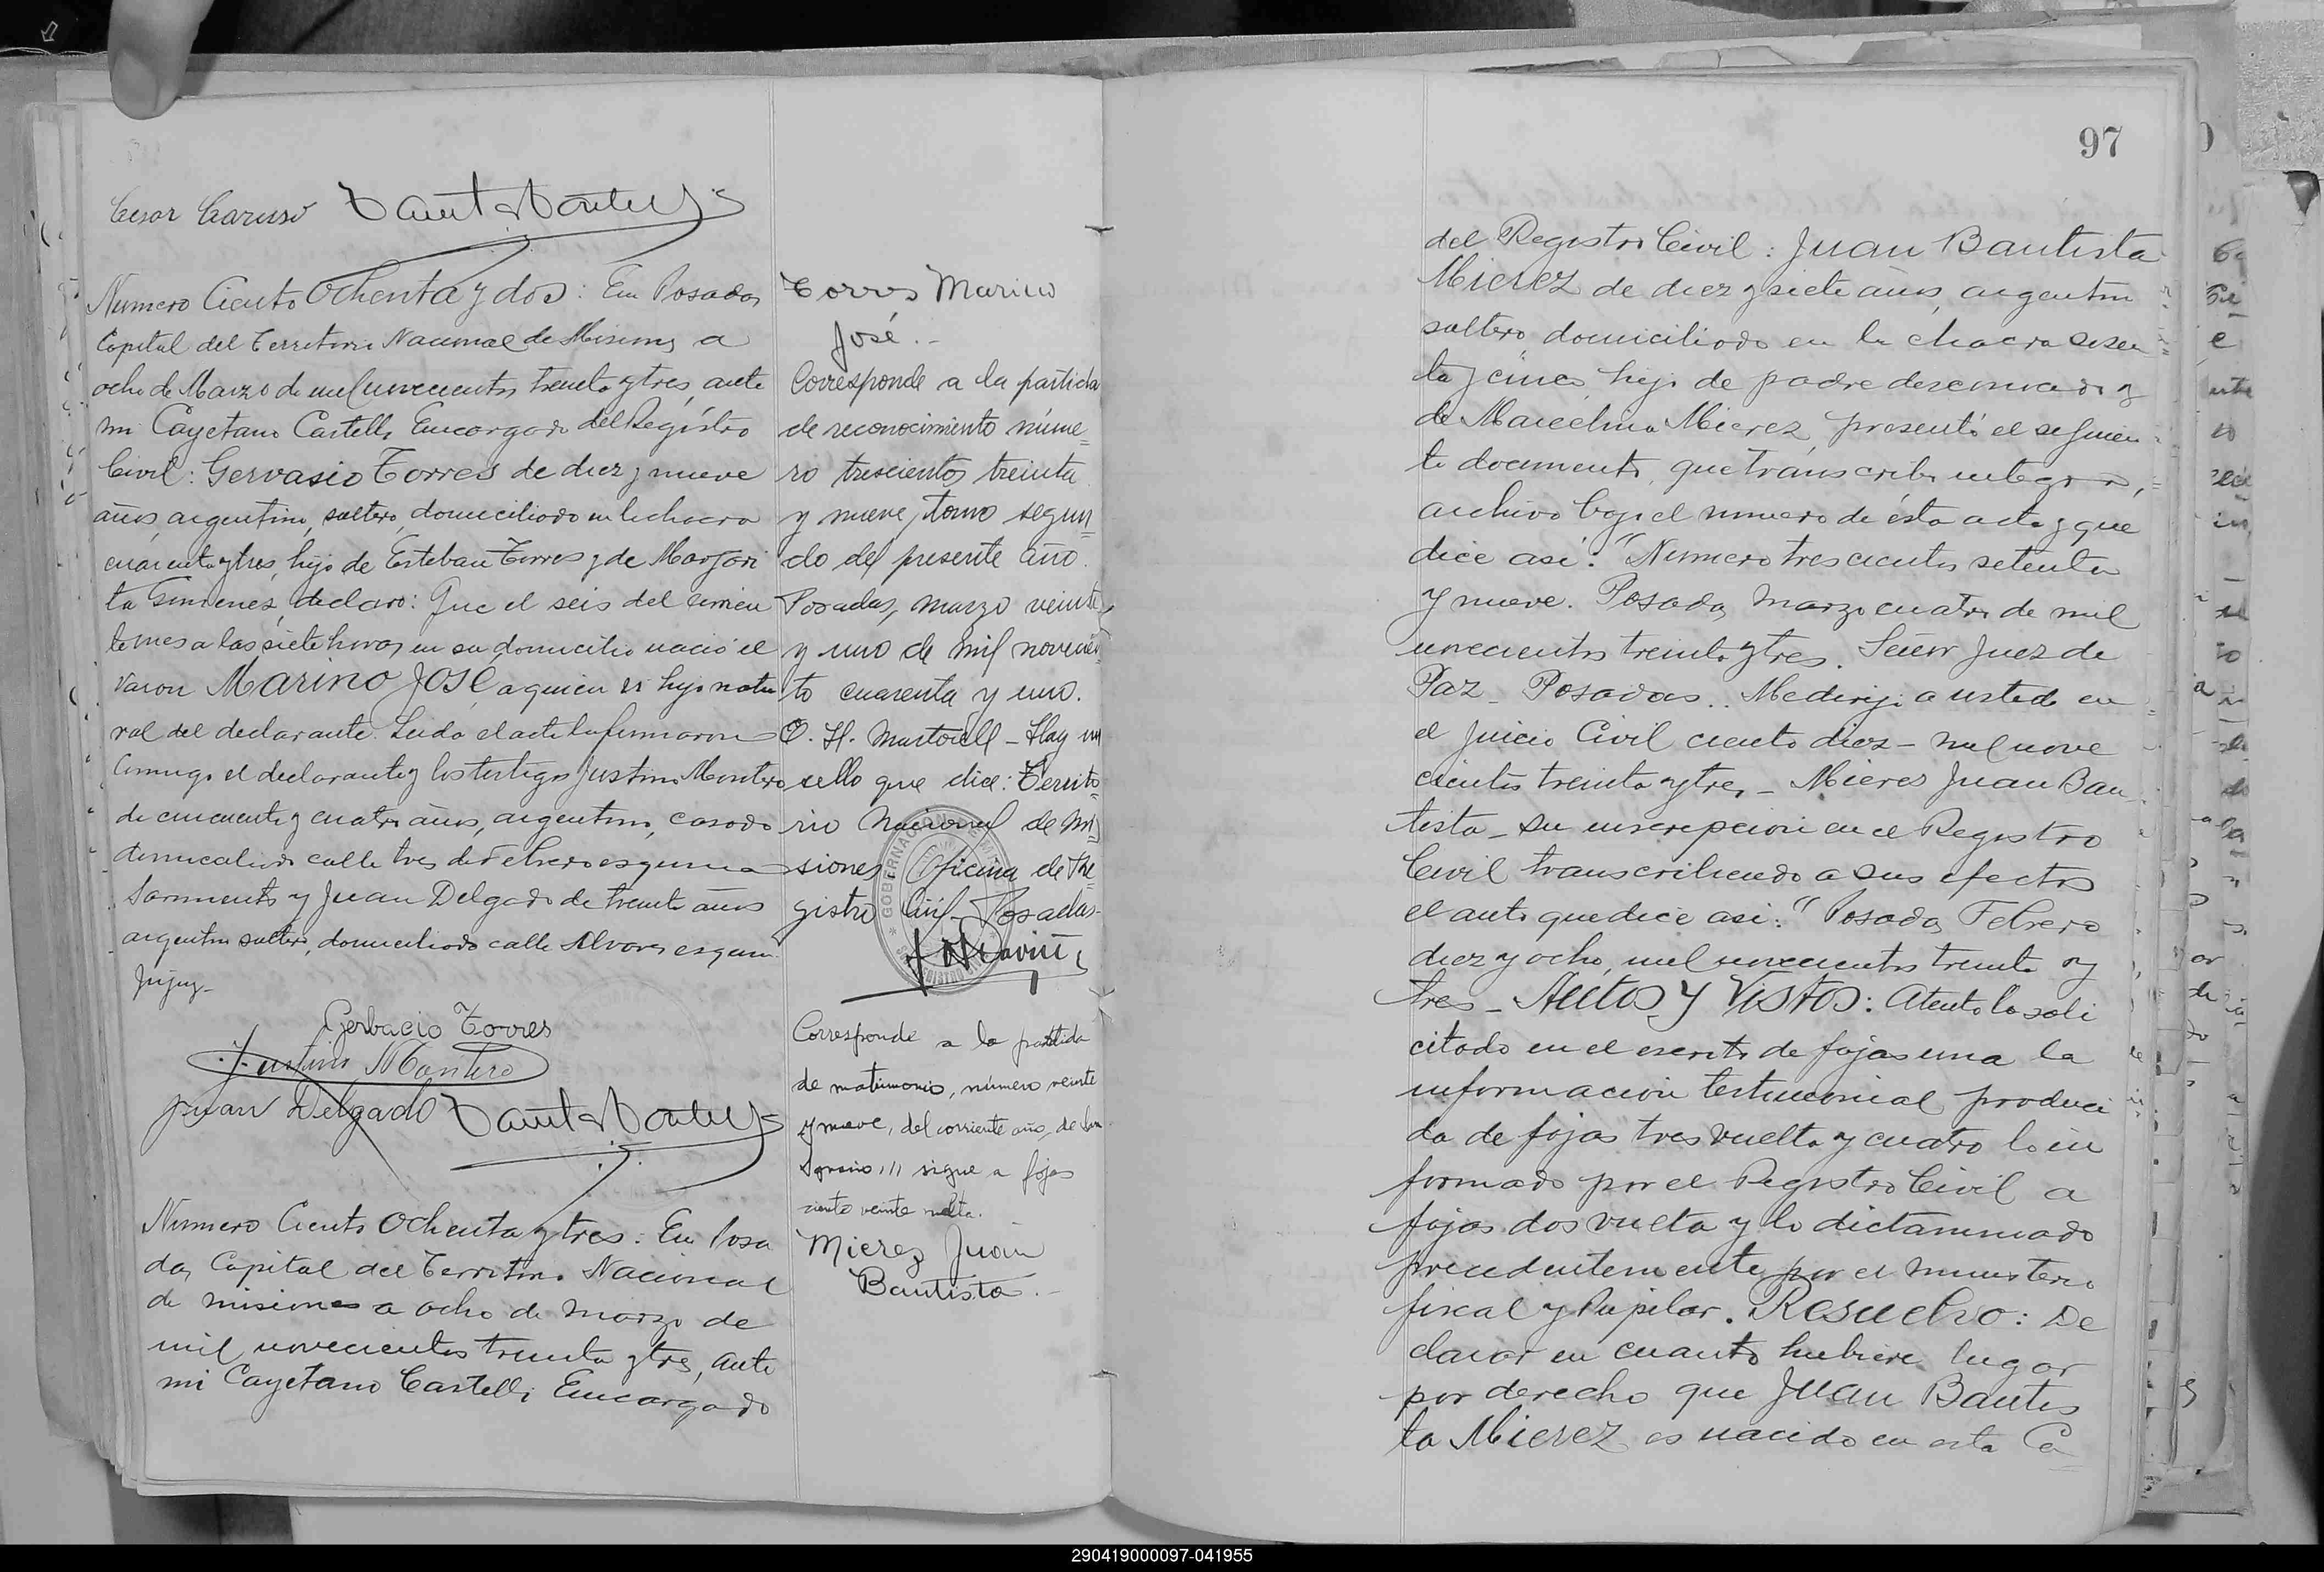 Cesar Caruso
Numero Ciento Ochenta y dos: En Posadas
Capital del Territorio Nacional de Misiones a
ocho de Marzo de mil novecientos treinta y tres, ante
mi Cayetano Castelli Encargado del Registro
Civil: Gervasio Torres de diez y nueve
años, argentino, soltero, domiciliado en la chacra
cuarenta y tres, hijo de Esteban Torres y de Margari
ta Gimenez, declaro: Que el seis del corrien
te mes a las siete horas en su domicilio nació el
varon MARINO JOSÉ, a quien es hijo natu
ral del declarante. Leida el acta la firmaron
conmigo el declarante y los testigos Justino Montero
de cincuenta y cuatro años, argentino, casado
domiciliado calle tres de Febrero esquina
Sarmiento y Juan Delgado de treinta años
argentino soltero, domiciliado calle Alvarez esquina
Jujuy-
Gerbacio Torres
Justino Montero
Juan Delgado
Numero Ciento Ochenta y tres: En Posa
das, Capital del Territorio Nacional
de misiones a ocho de marzo de
mil novecientos treinta y tres, ante
mi Cayetano Castelli Encargado
Torres Marino
José.-
Corresponde a la partida
de reconocimiento núme=
ro trescientos treinta
y nueve, tomo segun=
do del presente año.
Posadas, marzo veinte
y uno de mil novecien
to cuarenta y uno.
O. H. Martorell - Hay un
sello que dice: Territo=
rio Nacional de Mi=
siones Oficina de Re=
gistro Civil - Posadas-
Corresponde a la partida
de matrimonio, número veinte
y nueve, del corriente año, de
sigue a fojas
ciento veinte vuelta.
Mierez Juan
Bautista.-
97
del Registro Civil: Juan Bautista
Mierez de diez y siete años, argentino
soltero domiciliado en la chacra sesen
ta y cinco, hijo de padre desconocido y
de Marcelina Mierez, presentó el siguien
te documento, que transcribo integro,
archivo bajo el numero de ésta acta y que
dice asi: "Numero trescientos setenta
y nueve. Posadas, Marzo cuatro de mil
novecientos treinta y tres. Señor Juez de
Paz - Posadas.. Me dirijo a usted en
el Juicio Civil ciento diez - mil nove
cientos treinta y tres - Mieres Juan Bau
tista - su inscripcion en el Registro
Civil transcribiendo a sus efectos
el auto que dice asi: "Posadas, Febrero
diez y ocho, mil novecientos treinta y
tres - Autos y Vistos: Atento lo soli
citado en el escrito de fojas una la
informacion testimonial produci
da de fojas tres vuelta y cuatro lo in
formado por el Registro Civil a
fojas dos vuelta y lo dictaminado
precedentemente por el ministerio
fiscal y Pupilar. Resuelvo: De
clarar en cuanto hubiere lugar
por derecho que Juan Bautis
ta Mierez es nacido en esta Ca
290419000097-041955